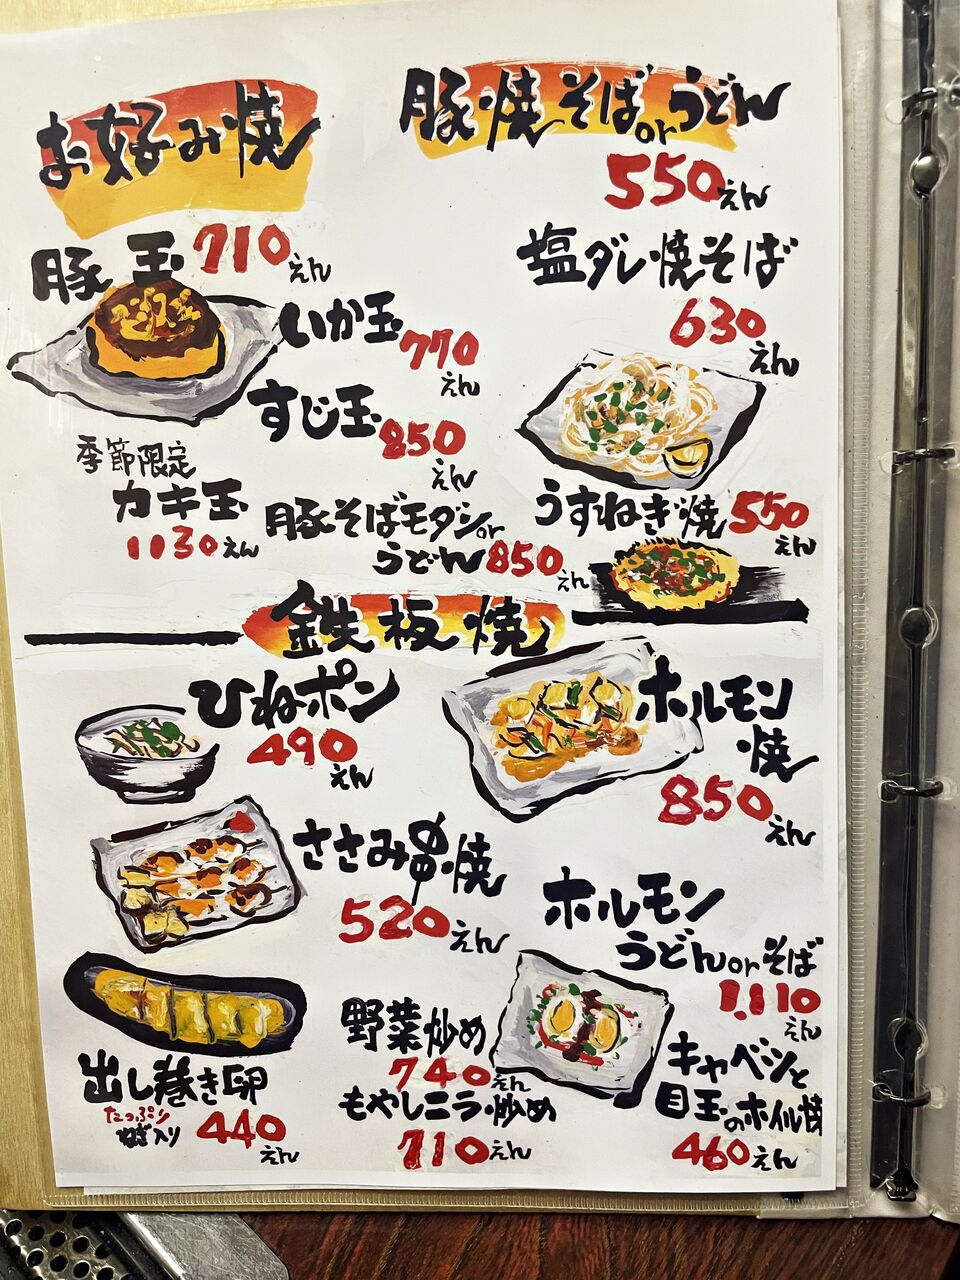 お好み焼
豚玉 710えん
いか玉 770えん
すじ玉 850えん
季節限定
カキ玉
1130えん
豚そばモダンor
うどん 850えん
豚焼そばorうどん
550えん
塩ダレ焼そば
630えん
うすねぎ焼 550えん
鉄板焼
ひねポン
490えん
ささみ串焼
520えん
出し巻き卵
たっぷり
ねぎ入り
440えん
野菜炒め
740えん
もやしニラ炒め
710えん
ホルモン
焼
850えん
ホルモン
うどんorそば
1,110えん
キャベツと
目玉のホイル焼
460えん